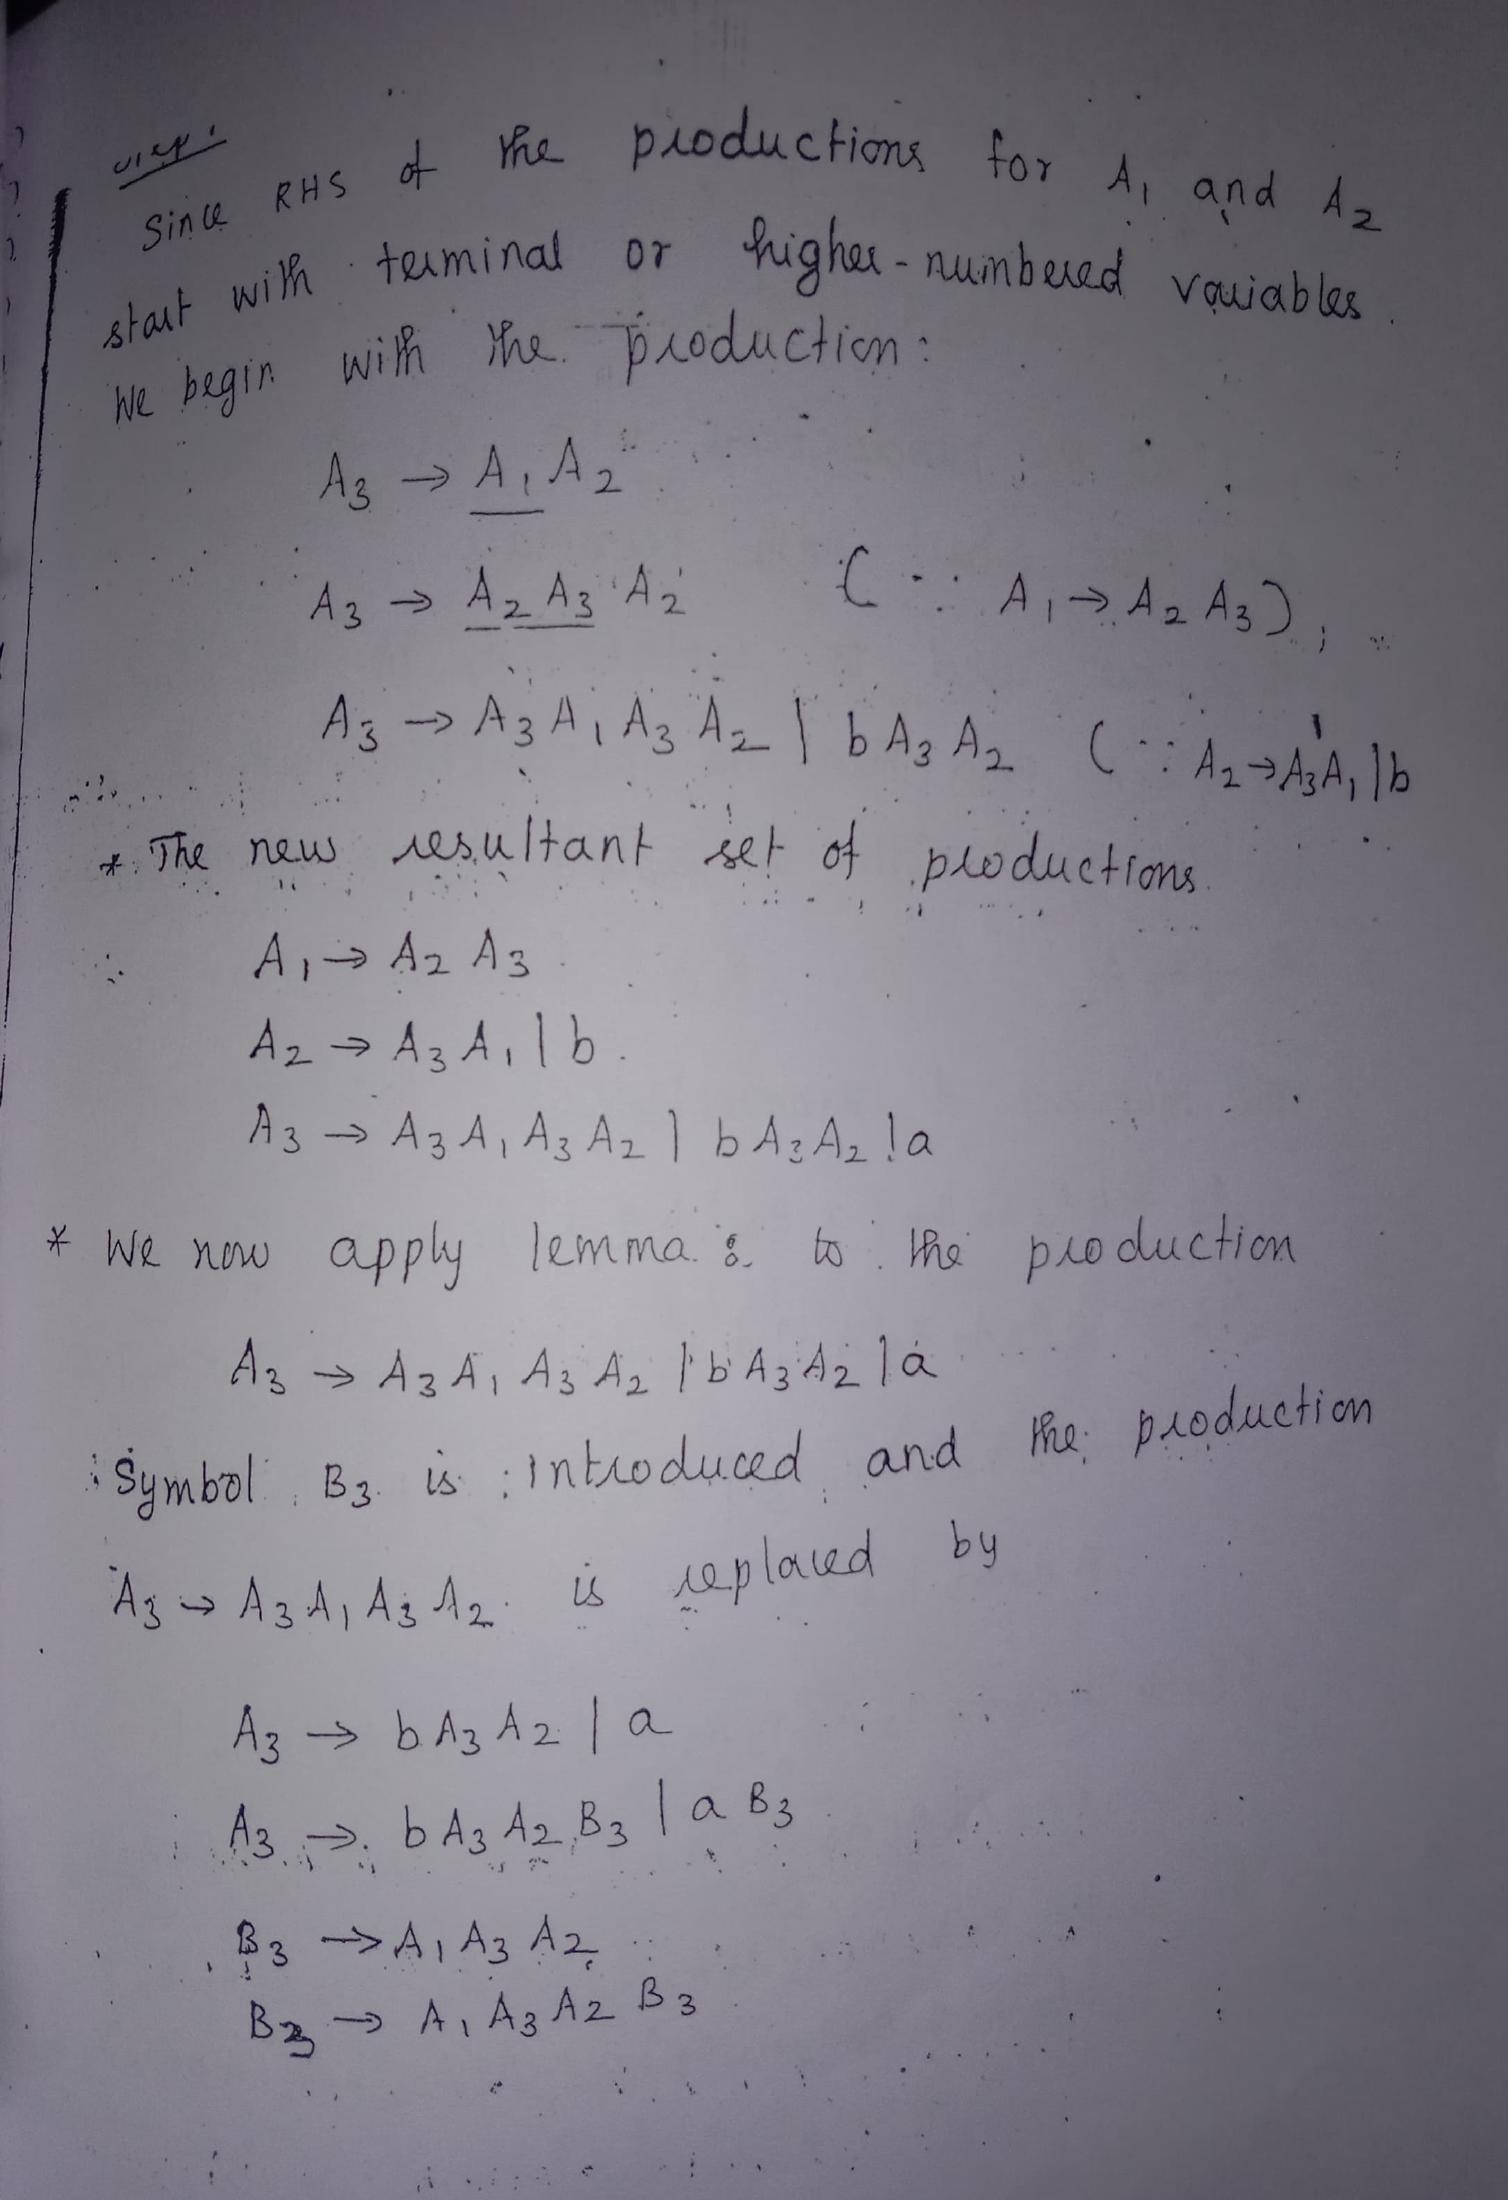 Step:
Since RHS of the productions for A₁ and A₂
start with terminal or higher-numbered variables.
We begin with the production:
A₃ → A₁ A₂
A₃ → A₂ A₃ A₂ (∵ A₁ → A₂ A₃)
A₃ → A₃ A₁ A₃ A₂ | b A₃ A₂ (∵ A₂ → A₃ A₁ | b
* The new resultant set of productions.
A₁ → A₂ A₃
A₂ → A₃ A₁ | b.
A₃ → A₃ A₁ A₃ A₂ | b A₃ A₂ | a
* We now apply lemma to the production
A₃ → A₃ A₁ A₃ A₂ | b A₃ A₂ | a
Symbol B₃ is introduced and the production
A₃ → A₃ A₁ A₃ A₂ is replaced by
A₃ → b A₃ A₂ | a
A₃ → b A₃ A₂ B₃ | a B₃
B₃ → A₁ A₃ A₂
B₃ → A₁ A₃ A₂ B₃